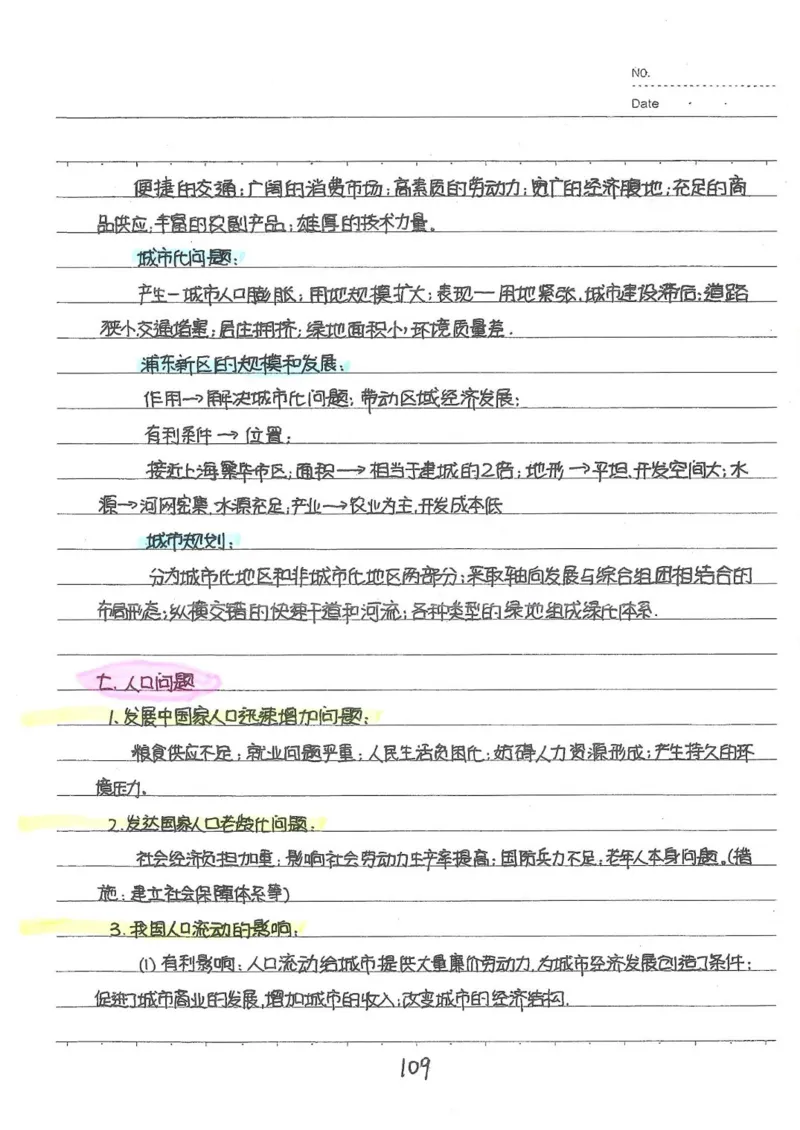 NO.
Date
便捷的交通；广阔的消费市场；高素质的劳动力；宽广的经济腹地；充足的商
品供应；丰富的农副产品；雄厚的技术力量。
城市化问题：
产生—城市人口膨胀；用地规模扩大；表现—用地紧张，城市建设滞后；道路
狭小，交通堵塞；居住拥挤；绿地面积小，环境质量差．
浦东新区的规模和发展：
作用→解决城市化问题；带动区域经济发展；
有利条件→位置；
接近上海繁华市区；面积→相当于建城的2倍；地形→平坦、开发空间大；水
源→河网密集，水源充足；产业→农业为主，开发成本低
城市规划：
分为城市化地区和非城市化地区两部分；采取轴向发展与综合组团相结合的
布局形态；纵横交错的快速干道和河流；各种类型的绿地组成绿化体系．
七．人口问题
1、发展中国家人口迅速增加问题：
粮食供应不足；就业问题严重；人民生活贫困化；妨碍人力资源形成；产生持久的环
境压力。
2．发达国家人口老龄化问题：
社会经济负担加重；影响社会劳动力生产率提高；国防兵力不足；老年人本身问题。（措
施：建立社会保障体系等）
3．我国人口流动的影响：
(1) 有利影响：人口流动给城市提供大量廉价劳动力，为城市经济发展创造了条件；
促进了城市商业的发展，增加城市的收入；改变城市的经济结构．
109